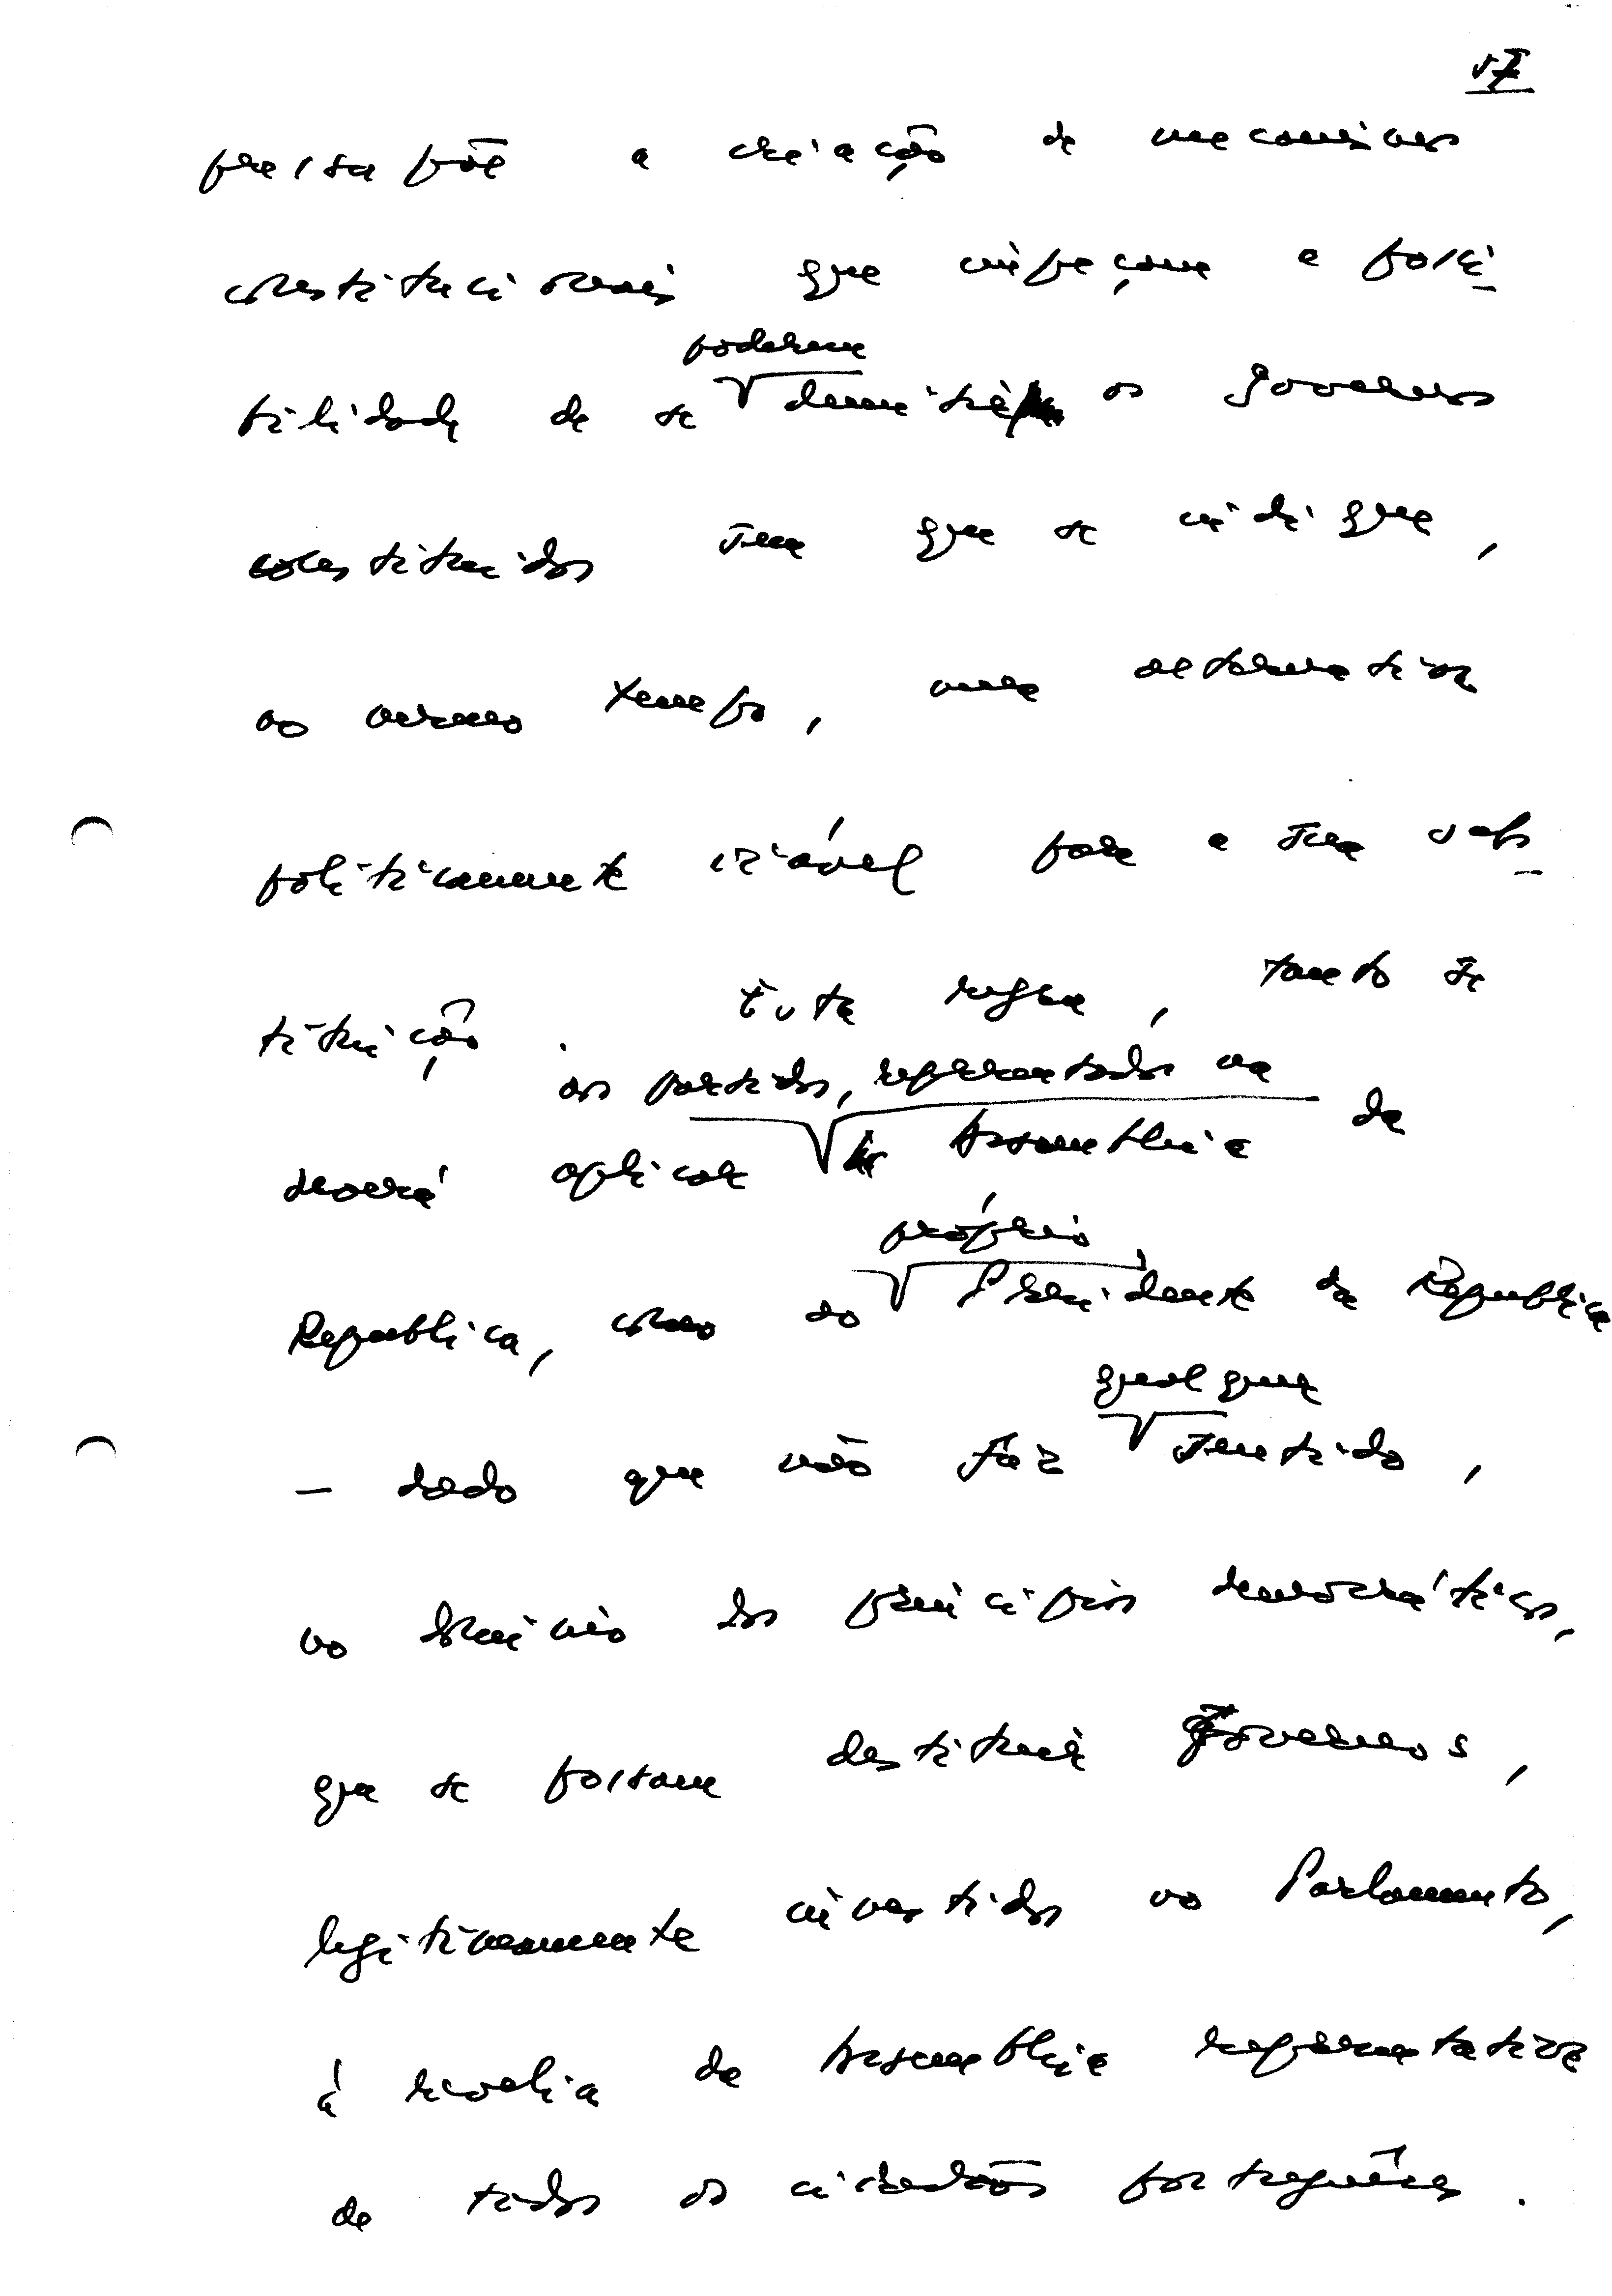 57
pressupõe a criação de mecanismos
constitucionais que impeçam a possi-
poderem
bilidade de se demitir os governos
constituídos sem que se indique,
ao mesmo tempo, uma alternativa
politicamente viável para a sua subs-
tituição. Esta regra, tanto se
aos partidos, representados na
deverá aplicar Assembleia da
próprio
Republica, como ao Presidente da Republica
qualquer
- dado que não faz sentido,
no domínio dos princípios democráticos,
que se possam destituir Governos,
legitimamente investidos no Parlamento,
à revelia da Assembleia representativa
de todos os cidadãos portugueses.